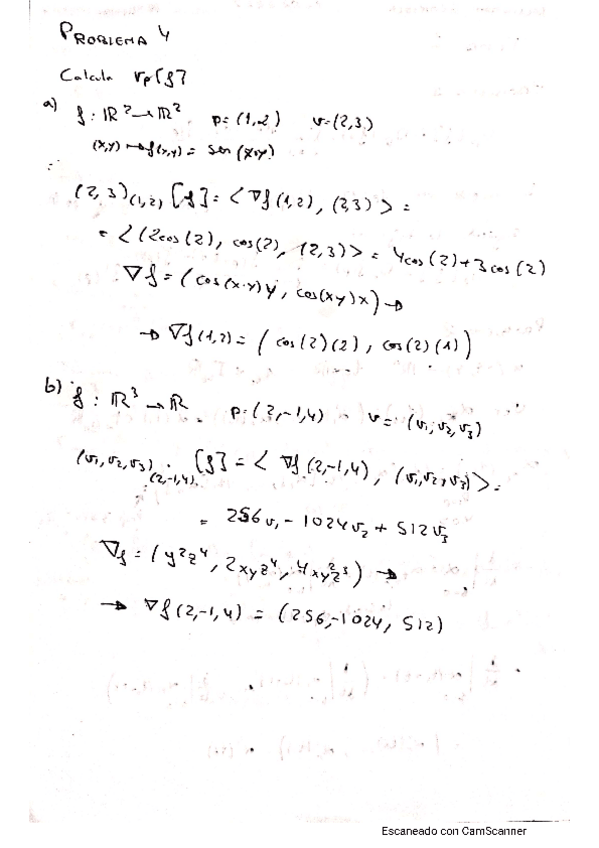 PROBLEMA 4
Calcula vp[f]
a) f: ℝ² → ℝ² p=(1,2) v=(2,3)
(x,y) → f(x,y) = sen(x·y)
(2,3)(1,2) [f] = < ∇f(1,2), (2,3) > =
= < (2cos(2), cos(2), (2,3) > = 4cos(2)+3cos(2)
∇f = (cos(x·y)y, cos(xy)x) →
→ ∇f(1,2) = (cos(2)(2), cos(2)(1))
b) f: ℝ³ → ℝ p=(2,-1,4) v=(v₁,v₂,v₃)
(v₁,v₂,v₃)(2,-1,4) [f] = < ∇f(2,-1,4), (v₁,v₂,v₃) > =
= 256v₁ - 1024v₂ + 512v₃
∇f = (y²z⁴, 2xyz⁴, 4xy²z³) →
→ ∇f(2,-1,4) = (256,-1024, 512)
Escaneado con CamScanner